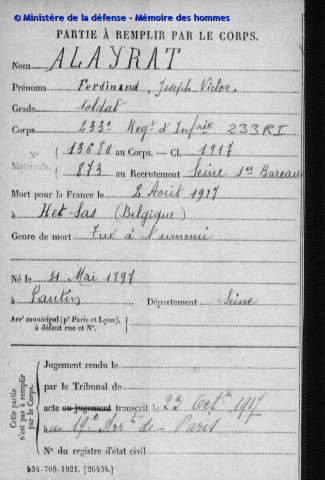 © Ministère de la défense - Mémoire des hommes
PARTIE À REMPLIR PAR LE CORPS.
Nom ALAYRAT
Prénoms Ferdinand, Joseph Victor.
Grade soldat
Corps 233e Regt d'Infrie 233 RI
N° 13680 au Corps. — Cl. 1917
Matricule. 873 au Recrutement Seine 1er Bureau
Mort pour la France le 2 Août 1917
à Het Sas (Belgique)
Genre de mort Tué à l'ennemi
Né le 31 Mai 1897
à Pantin Département Seine
Arrt municipal (pr Paris et Lyon),
à défaut rue et N°.
Cette partie
n'est pas à remplir
par le Corps.
Jugement rendu le
par le Tribunal de
acte ou jugement transcrit le 22 Octbre 1917
19e Arrt de Paris
N° du registre d'état civil
534-708-1921. [26434.]